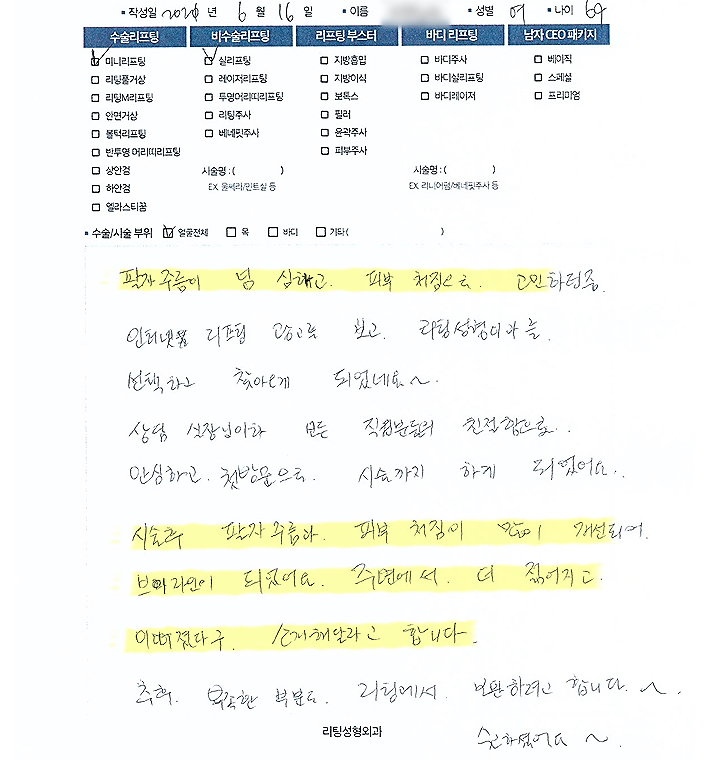 ▪ 작성일 2020 년 6 월 16 일 ▪ 이름 ▪ 성별 여 ▪ 나이 69
수술리프팅 비수술리프팅 리프팅 부스터 바디 리프팅 남자 CEO 패키지
☑ 미니리프팅 ☑ 실리프팅 □ 지방흡입 □ 바디주사 □ 베이직
□ 리팅풀거상 □ 레이저리프팅 □ 지방이식 □ 바디실리프팅 □ 스페셜
□ 리팅M리프팅 □ 투명어리띠리프팅 □ 보톡스 □ 바디레이저 □ 프리미엄
□ 안면거상 □ 리팅주사 □ 필러
□ 볼턱리프팅 □ 베네핏주사 □ 윤곽주사
□ 반투명 어리띠리프팅 □ 피부주사
□ 상안검 시술명 : ( ) 시술명 : ( )
□ 하안검 EX. 울쎄라/민트실 등 EX. 리니어펌/베네핏주사 등
□ 엘라스티꿈
▪ 수술/시술 부위 ☑ 얼굴전체 □ 목 □ 바디 □ 기타 ( )
팔자주름이 넘 심하고. 피부 처짐으로. 고민하던중.
인터넷 리프팅 광고를 보고. 리팅성형외과를.
선택하고 찾아오게 되었네요~.
상담 실장님이하 모든 직원분들의 친절함으로..
안심하고. 첫방문으로. 시술까지 하게 되었어요..
시술후 팔자주름과. 피부 처짐이 많이 개선되어.
브이라인이 되었어요. 주변에서. 더 젊어지고.
이뻐졌다구. 소개해달라고 합니다.
추후. 부족한 부분도. 리팅에서. 보완하려고 합니다. ~.
리팅성형외과
수고하셨어요 ~.